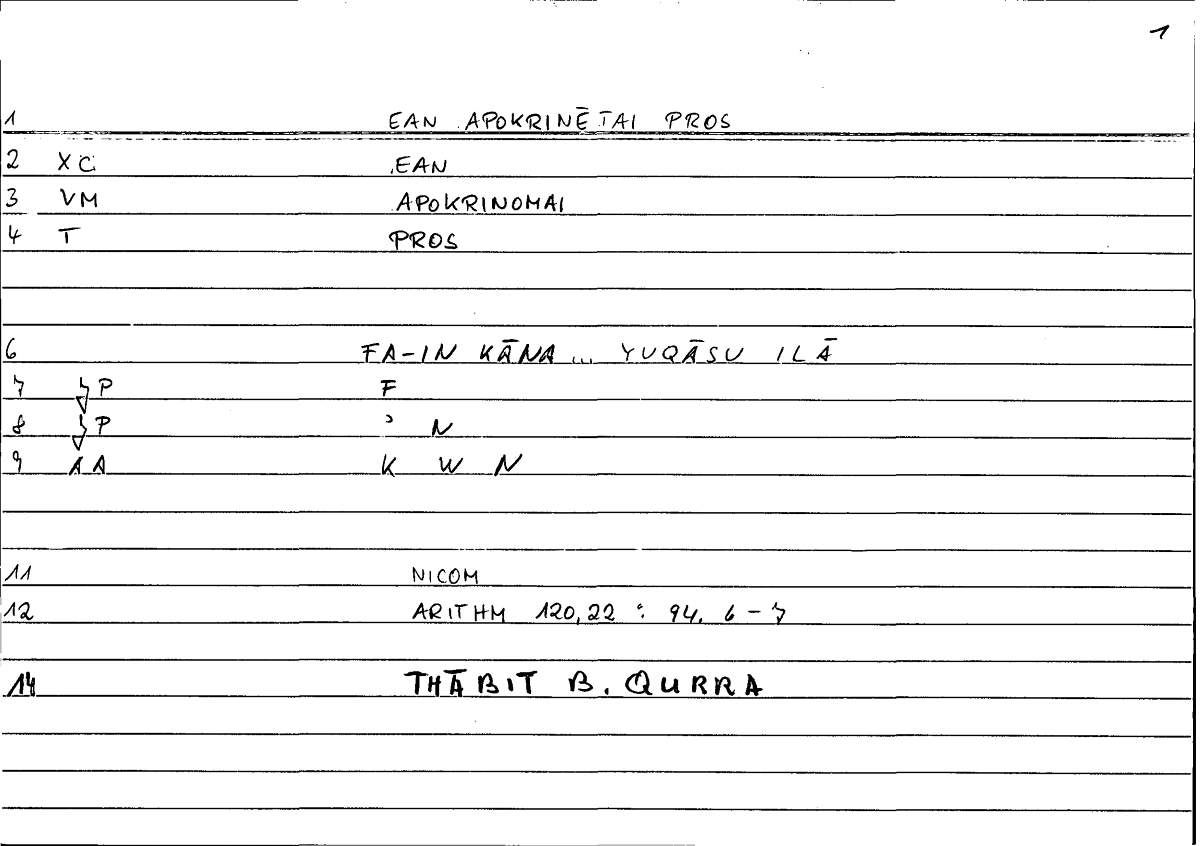 1
1 EAN APOKRINĒTAI PROS
2 XC EAN
3 VM APOKRINOMAI
4 T PROS
6 FA-IN KĀNA ... YUQĀSU ILĀ
7 P F
8 P ʾ N
9 AA K W N
11 NICOM
12 ARITHM 120,22 : 94, 6-7
14 THĀBIT B. QURRA